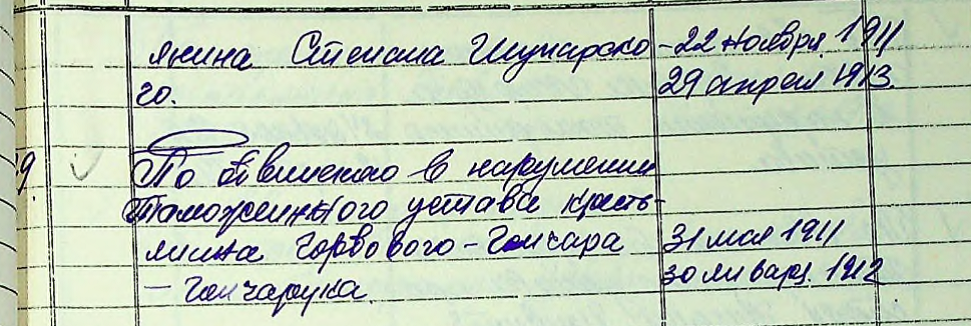 янина Степана Шунарско - 22 ноября 1911
го. 29 апреля 1913.
9 По обвинению в нарушении
Таможенного устава кресть-
янина Горвового-Гончара 31 мая 1911
— Гончарука. 30 января 1912